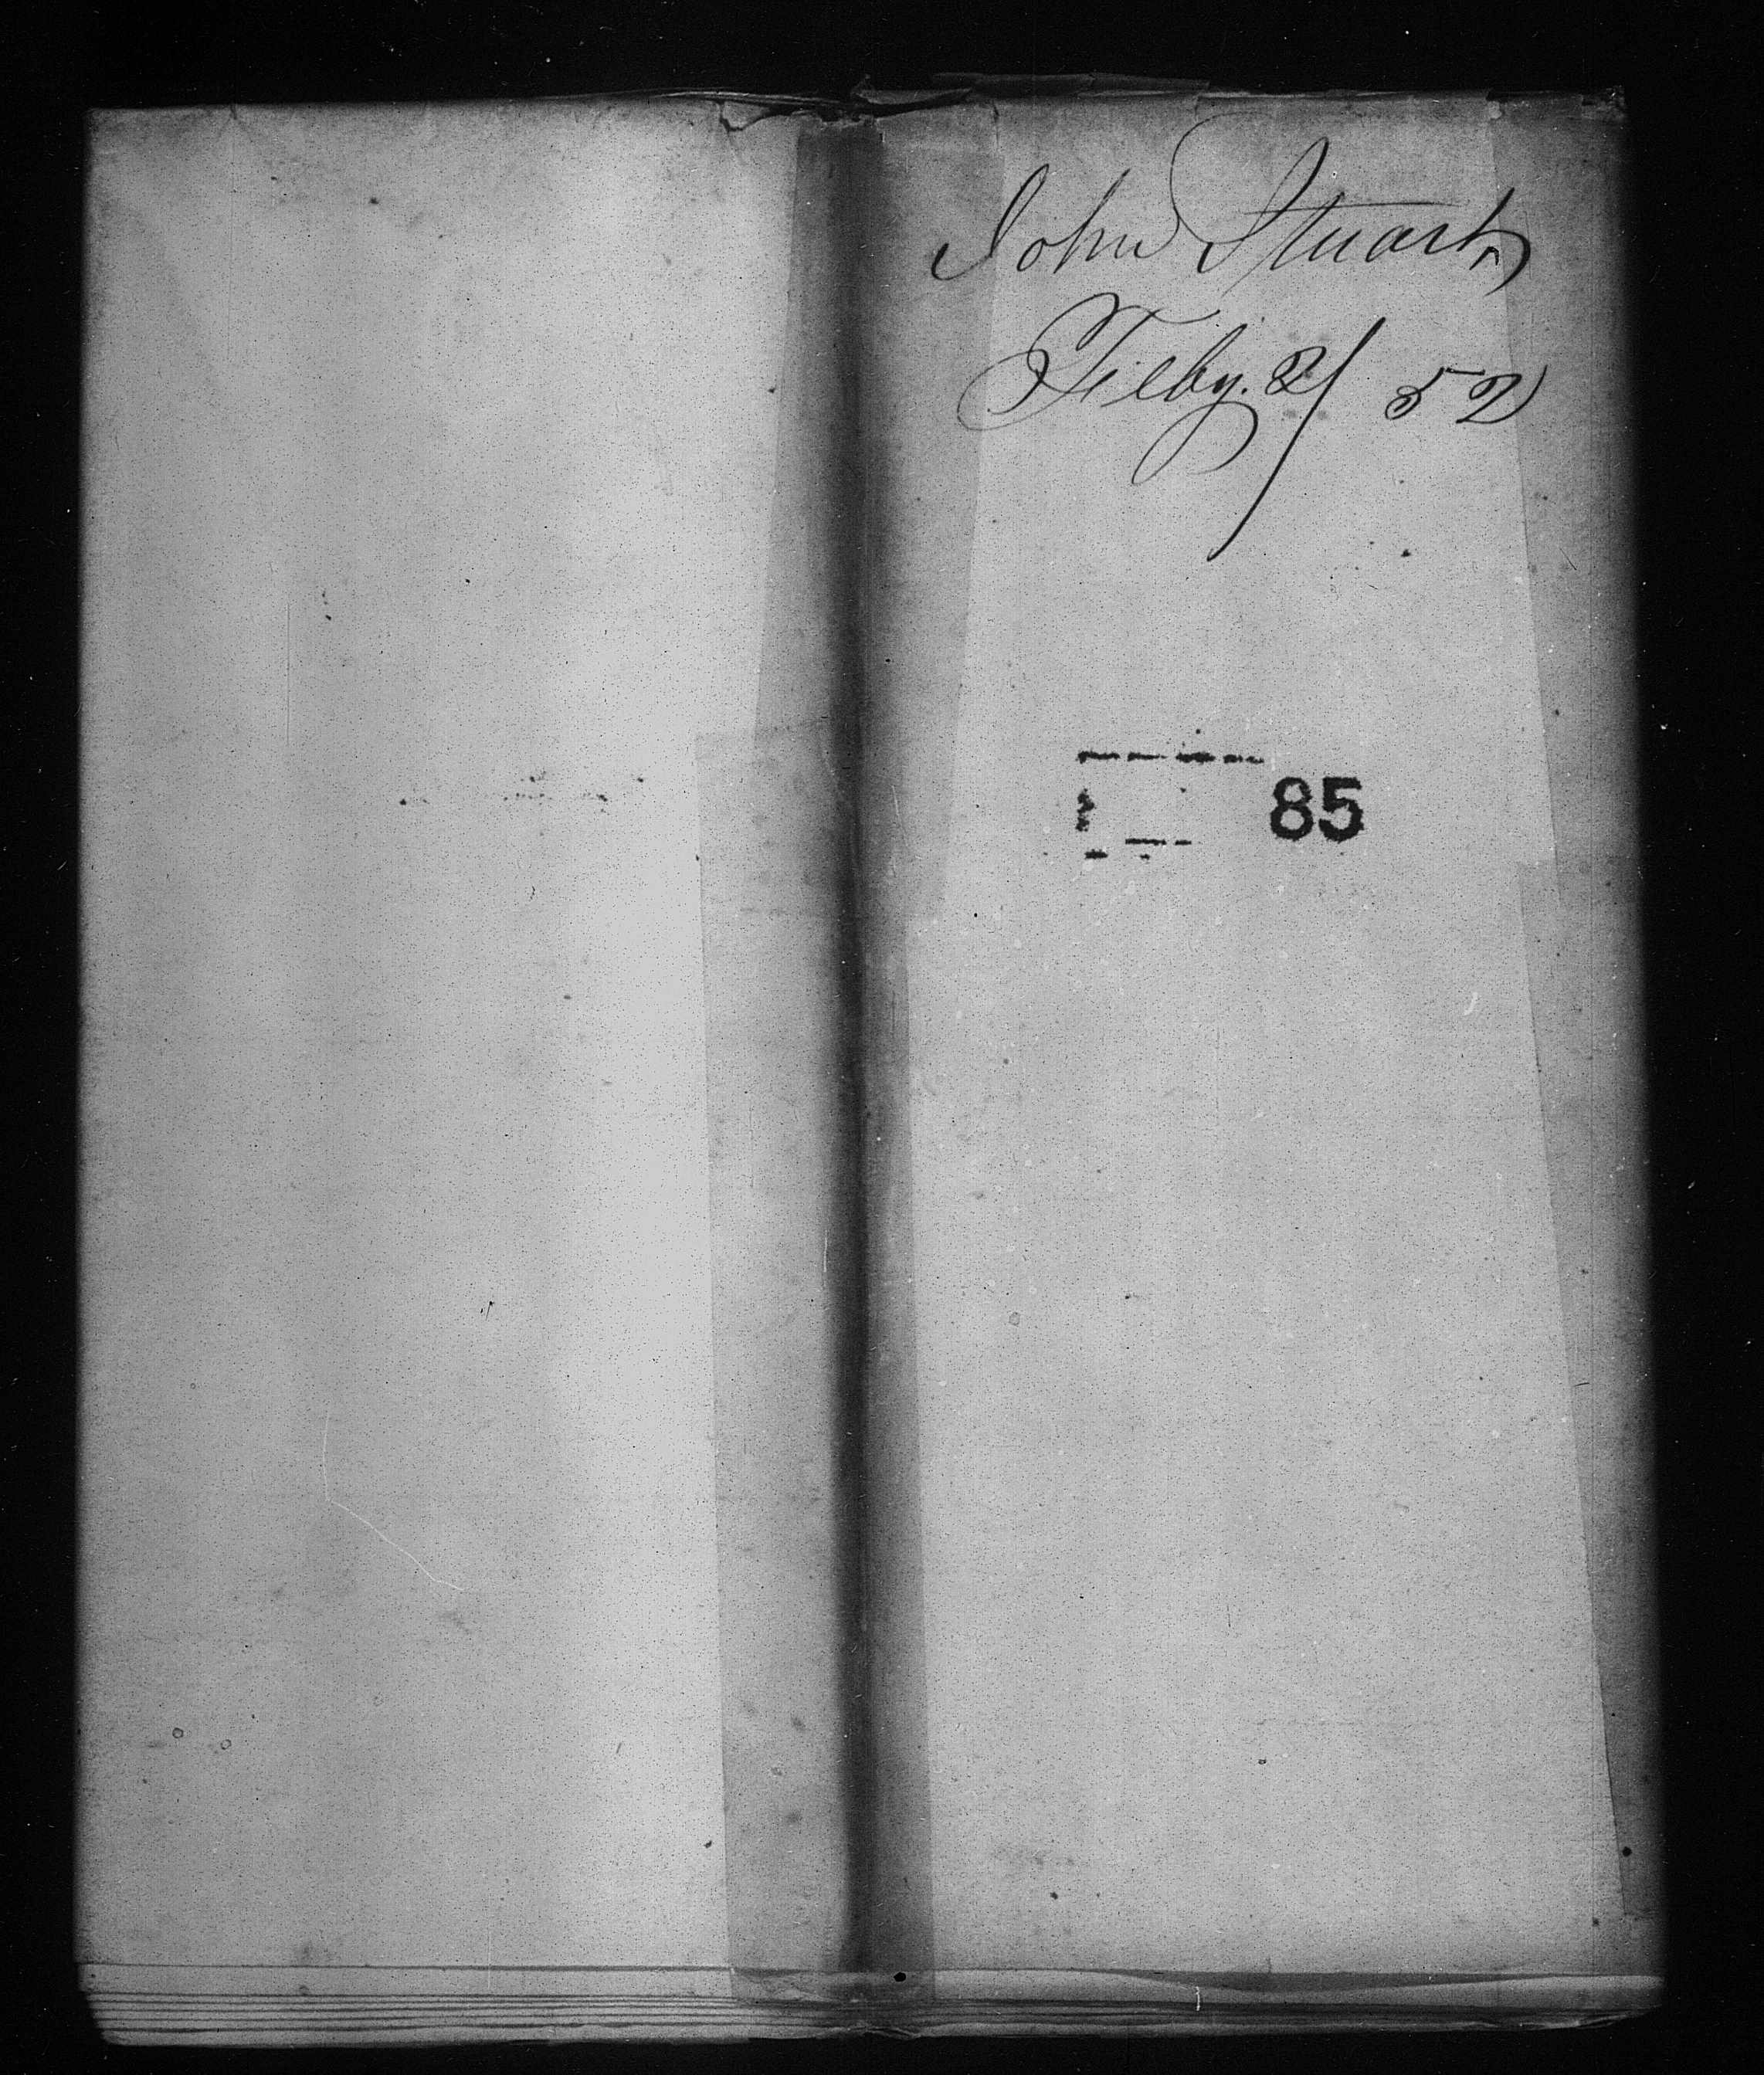 John Stuart
Feby. 2/ 52
85